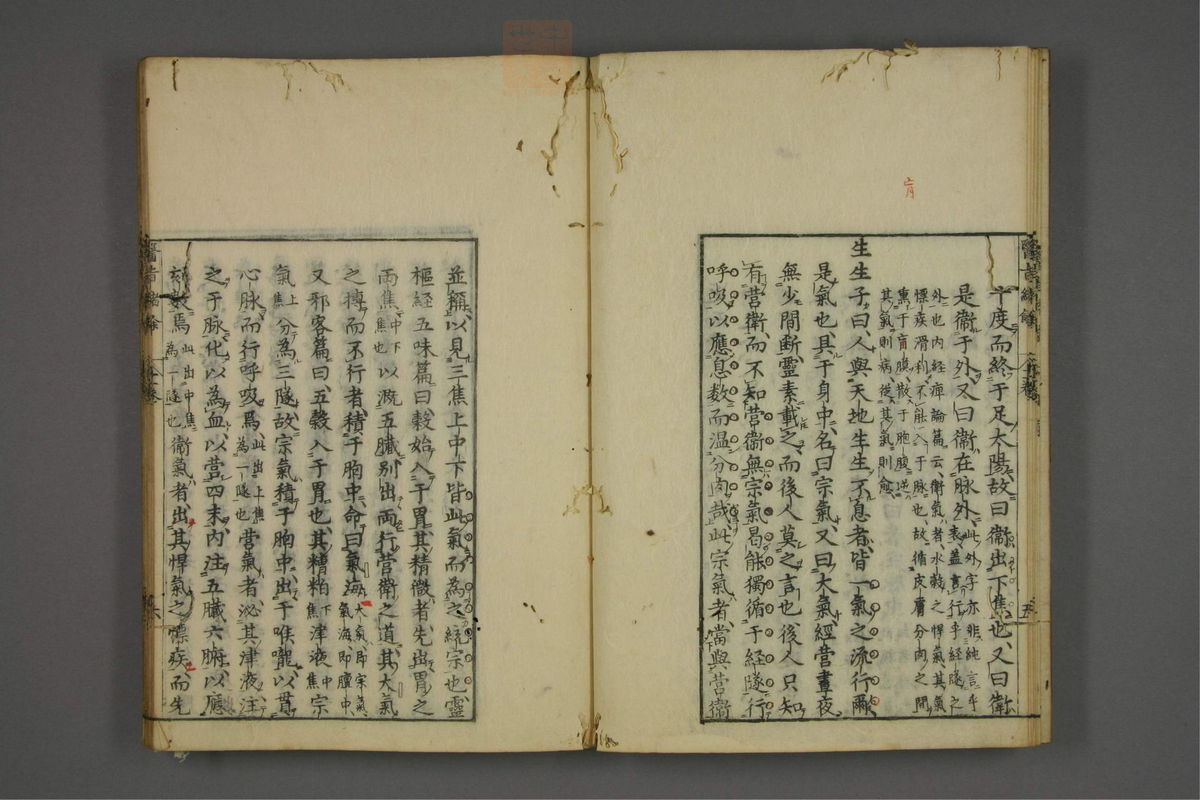 十度而終于足太陽故曰衞出下焦也又曰衞
是衞于外又曰衞在脉外此外字亦非純言乎
表盖言行乎經隧之
外也内經痺論篇云衞氣者水穀之悍氣其氣
慓疾滑利不能入于脉也故循皮膚分肉之間
熏于肓膜散于胞腹逆
其氣則病從其氣則愈
生生子曰人與天地生生不息者皆一氣之流行爾
是氣也具于身中名曰宗氣又曰大氣經營晝夜
無少間斷靈素載之而後人莫之言也後人只知
有營衞而不知營衞無宗氣曷能獨循于經隧行
呼吸以應息数而温分肉哉此宗氣者當與營衞
並稱以見三焦上中下皆此氣而為之統宗也靈
樞經五味篇曰穀始入于胃其精微者先出胃之
兩焦中下
焦也以溉五臟别出兩行營衞之道其大氣
之摶而不行者積于胸中命曰氣海大氣即宗氣
氣海即膻中
又邪客篇曰五穀入于胃也其糟粕下
焦津液中
焦宗
氣上
焦分為三隧故宗氣積于胸中出于喉嚨以貫
心脉而行呼吸焉此出上焦
為一隧也營氣者泌其津液注
之于脉化以為血以營四末内注五臟六腑以應
刻数焉此出中焦
為一隧也衞氣者出其悍氣之慓疾而先
醫旨緒餘
醫旨緒餘
肓
五
六